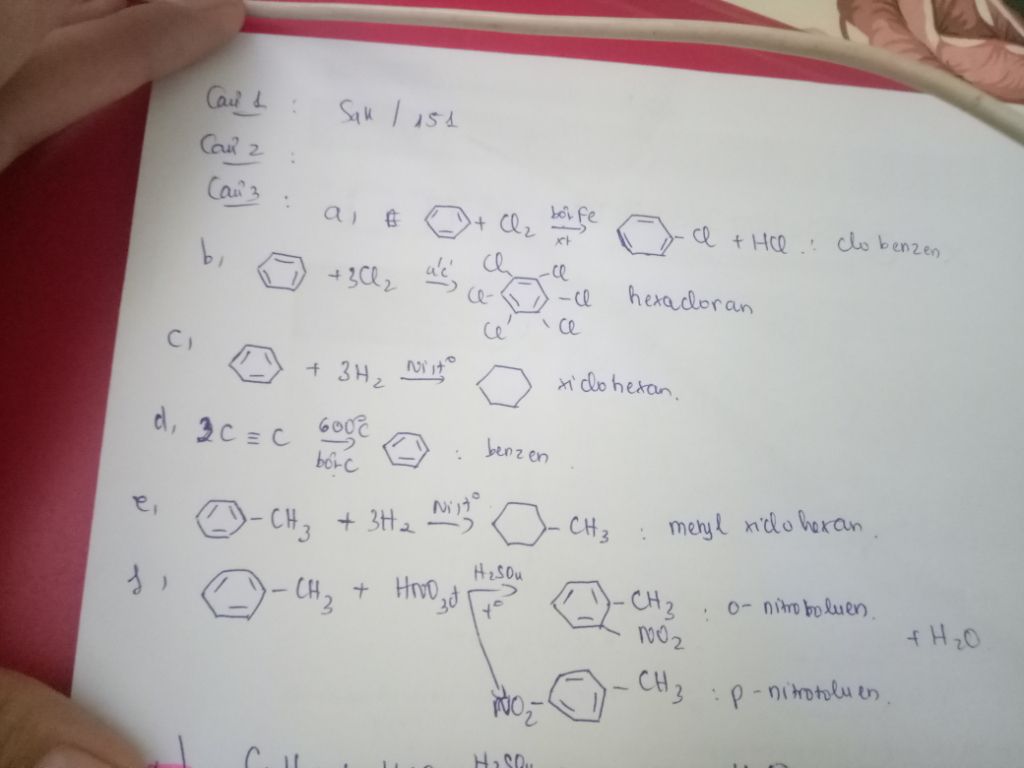 Câu 1 : SGK / 151
Câu 2 :
Câu 3 :
a, + Cl2 bột Fe xt - Cl + HCl : clo benzen
b, + 3Cl2 a's' Cl Cl Cl Cl Cl Cl hexacloran
c, + 3H2 Ni, t° xiclohexan.
d, 3C ≡ C 600°C bột C : benzen
e, - CH3 + 3H2 Ni, t° - CH3 : metyl xiclohexan.
f, - CH3 + HNO3đ H2SO4 t° - CH3 NO2 : o- nitrotoluen. + H2O
NO2 - - CH3 : p - nitrotoluen.
H2SO4